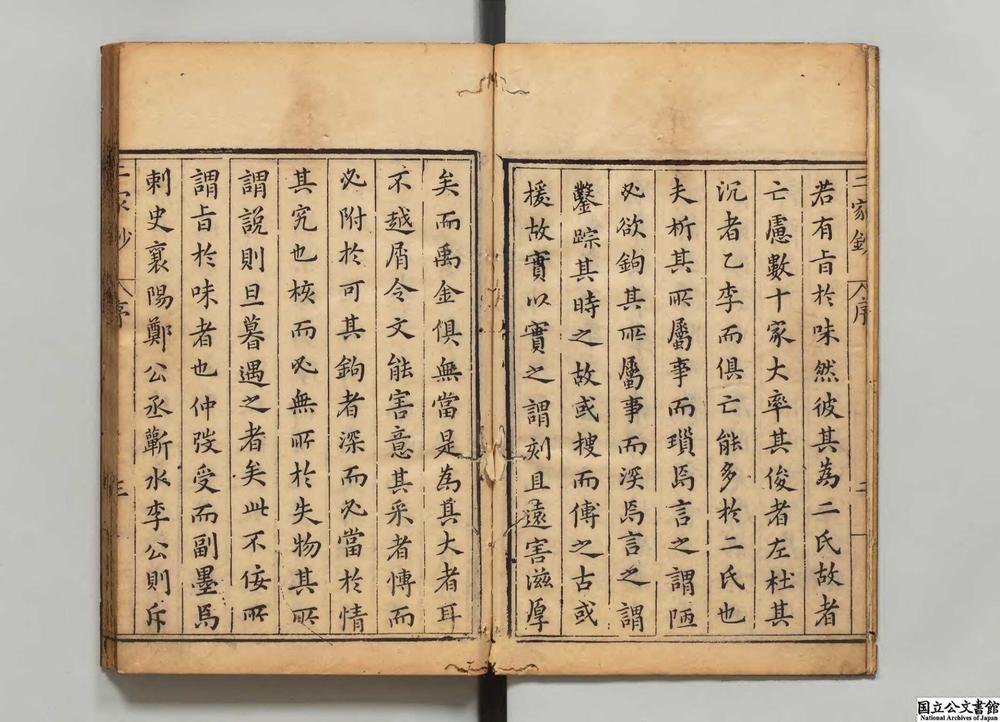 二家鈔 序 二
若有旨於味然彼其為二氏故者
亡慮數十家大率其俊者左杜其
沉者乙李而俱亡能多於二氏也
夫析其所屬事而瑣焉言之謂陋
必欲鉤其所屬事而深焉言之謂
鑿踪其時之故或搜而傅之古或
援故實以實之謂刻且遠害滋厚
矣而禹金俱無當是為其大者耳
不越屑令文能害意其采者博而
必附於可其鉤者深而必當於情
其究也核而必無所於失物其所
謂說則旦暮遇之者矣此不佞所
謂旨於味者也仲弢受而副墨焉
刺史襄陽鄭公丞蘄水李公則斥
二家鈔 序 三
国立公文書館
National Archives of Japan